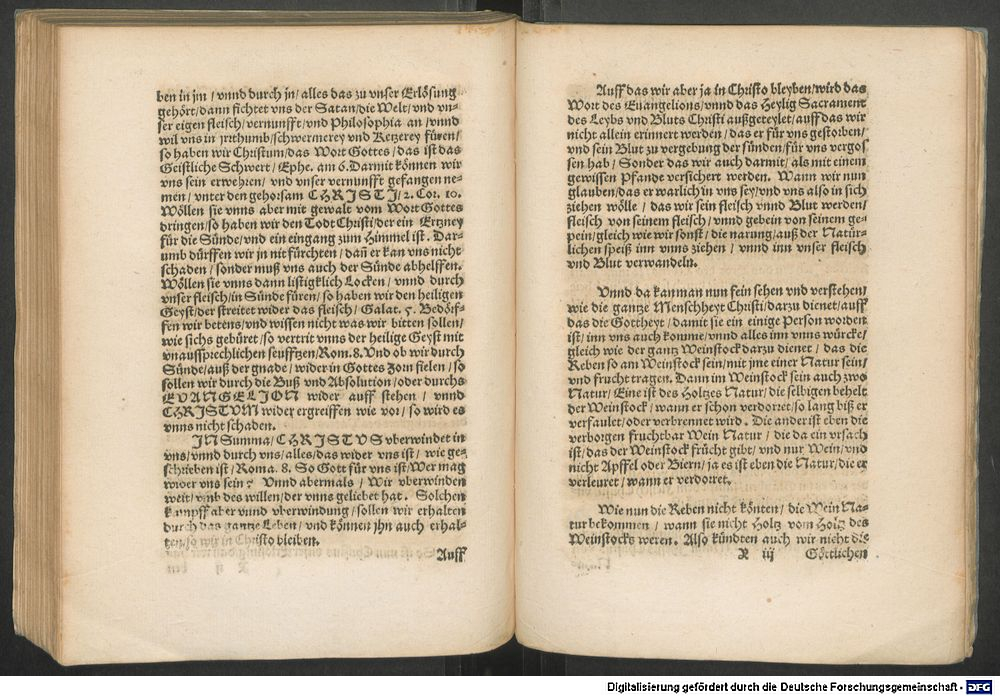 ben in jm / vnnd durch jn / alles das zu vnser Erlösung
gehört / dann fichtet vns der Satan / die Welt / vnd vn-
ser eigen fleisch / vernunfft / vnd Philosophia an / vnnd
wil vns in jrrthumb / schwermerey vnd Ketzerey füren /
so haben wir Christum / das Wort Gottes / das ist das
Geistliche Schwert / Ephe. am 6. Darmit können wir
vns sein erwehren / vnd vnser vernunfft gefangen ne-
men / vnter den gehorsam CHRISTI / 2. Cor. 10.
Wöllen sie vnns aber mit gewalt vom Wort Gottes
dringen / so haben wir den Todt Christi / der ein Ertzney
für die Sünde / vnd ein eingang zum Himmel ist. Dar-
umb dürffen wir jn nit fürchten / dañ er kan vns nicht
schaden / sonder muß vns auch der Sünde abhelffen.
Wöllen sie vnns dann listigklich Locken / vnnd durch
vnser fleisch / in Sünde füren / so haben wir den heiligen
Geyst / der streitet wider das fleisch / Galat. 5. Bedörf-
fen wir betens / vnd wissen nicht was wir bitten sollen /
wie sichs gebüret / so vertrit vnns der heilige Geyst mit
vnaussprechlichen seufftzen / Rom. 8. Vnd ob wir durch
Sünde / auß der gnade / wider in Gottes zorn fielen / so
sollen wir durch die Buß vnd Absolution / oder durchs
EVANGELION wider auff stehen / vnnd
CHRISTVM wider ergreiffen wie vor / so wird es
vnns nicht schaden.
IN Summa / CHRISTVS vberwindet in
vns / vnnd durch vns / alles / das wider vns ist / wie ge-
schrieben ist / Roma. 8. So Gott für vns ist / Wer mag
wider vns sein? Vnnd abermals / Wir vberwinden
weit / vmb des willen / der vnns geliebet hat. Solchen
kampff aber vnnd vberwindung / sollen wir erhalten
durch das gantze Leben / vnd können jhn auch erhal-
ten / so wir in Christo bleiben.
Auff
Auff das wir aber ja in Christo bleyben / wird das
Wort des Euangelions / vnnd das Heylig Sacrament
des Leybs vnd Bluts Christi außgeteylet / auff das wir
nicht allein erinnert werden / das er für vns gestorben /
vnd sein Blut zu vergebung der sünden / für vns vergos
sen hab / Sonder das wir auch darmit / als mit einem
gewissen Pfande versichert werden. Wann wir nun
glauben / das er warlich in vns sey / vnd vns also in sich
ziehen wölle / das wir sein fleisch vnnd Blut werden /
fleisch von seinem fleisch / vnnd gebein von seinem ge-
pein / gleich wie wir sonst / die narung / auß der Natür-
lichen speiß inn vnns ziehen / vnnd inn vnser fleisch
vnd Blut verwandeln.
Vnnd da kan man nun fein sehen vnd verstehen /
wie die gantze Menschheyt Christi / darzu dienet / auff
das die Gottheyt / damit sie ein einige Person worden
ist / inn vns auch komme / vnnd alles inn vnns würcke /
gleich wie der gantz Weinstock darzu dienet / das die
Reben so am Weinstock sein / mit jme einer Natur sein /
vnd frucht tragen. Dann im Weinstock sein auch zwo
Natur / Eine ist des Holtzes Natur / die selbigen behelt
der Weinstock / wann er schon verdorret / so lang biß er
verfaulet / oder verbrennet wird. Die ander ist eben die
verborgen fruchtbar Wein Natur / die da ein vrsach
ist / das der Weinstock frücht gibt / vnd nur Wein / vnd
nicht Apffel oder Biern / ja es ist eben die Natur / die er
verleuret / wann er verdorret.
Wie nun die Reben nicht könten / die Wein Na-
tur bekommen / wann sie nicht Holtz vom Holtz des
Weinstocks weren. Also kündten auch wir nicht die
R iij Göttlichen
Digitalisierung gefördert durch die Deutsche Forschungsgemeinschaft - DFG